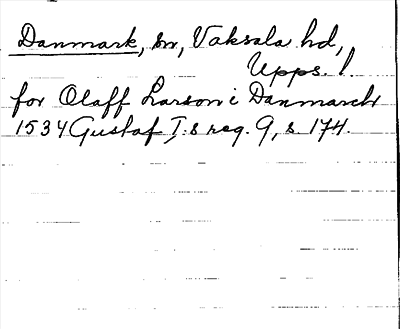 Danmark, sn, Vaksala hd,
Upps. l.
for Olaff Larson i Danmarck
1534 Gustaf I:s reg. 9, s. 174.